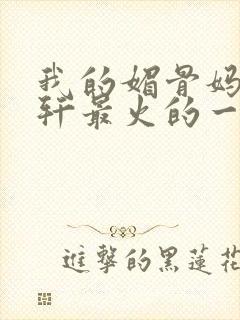 我的媚骨妈
轩最火的一
进擊的黑蓮花